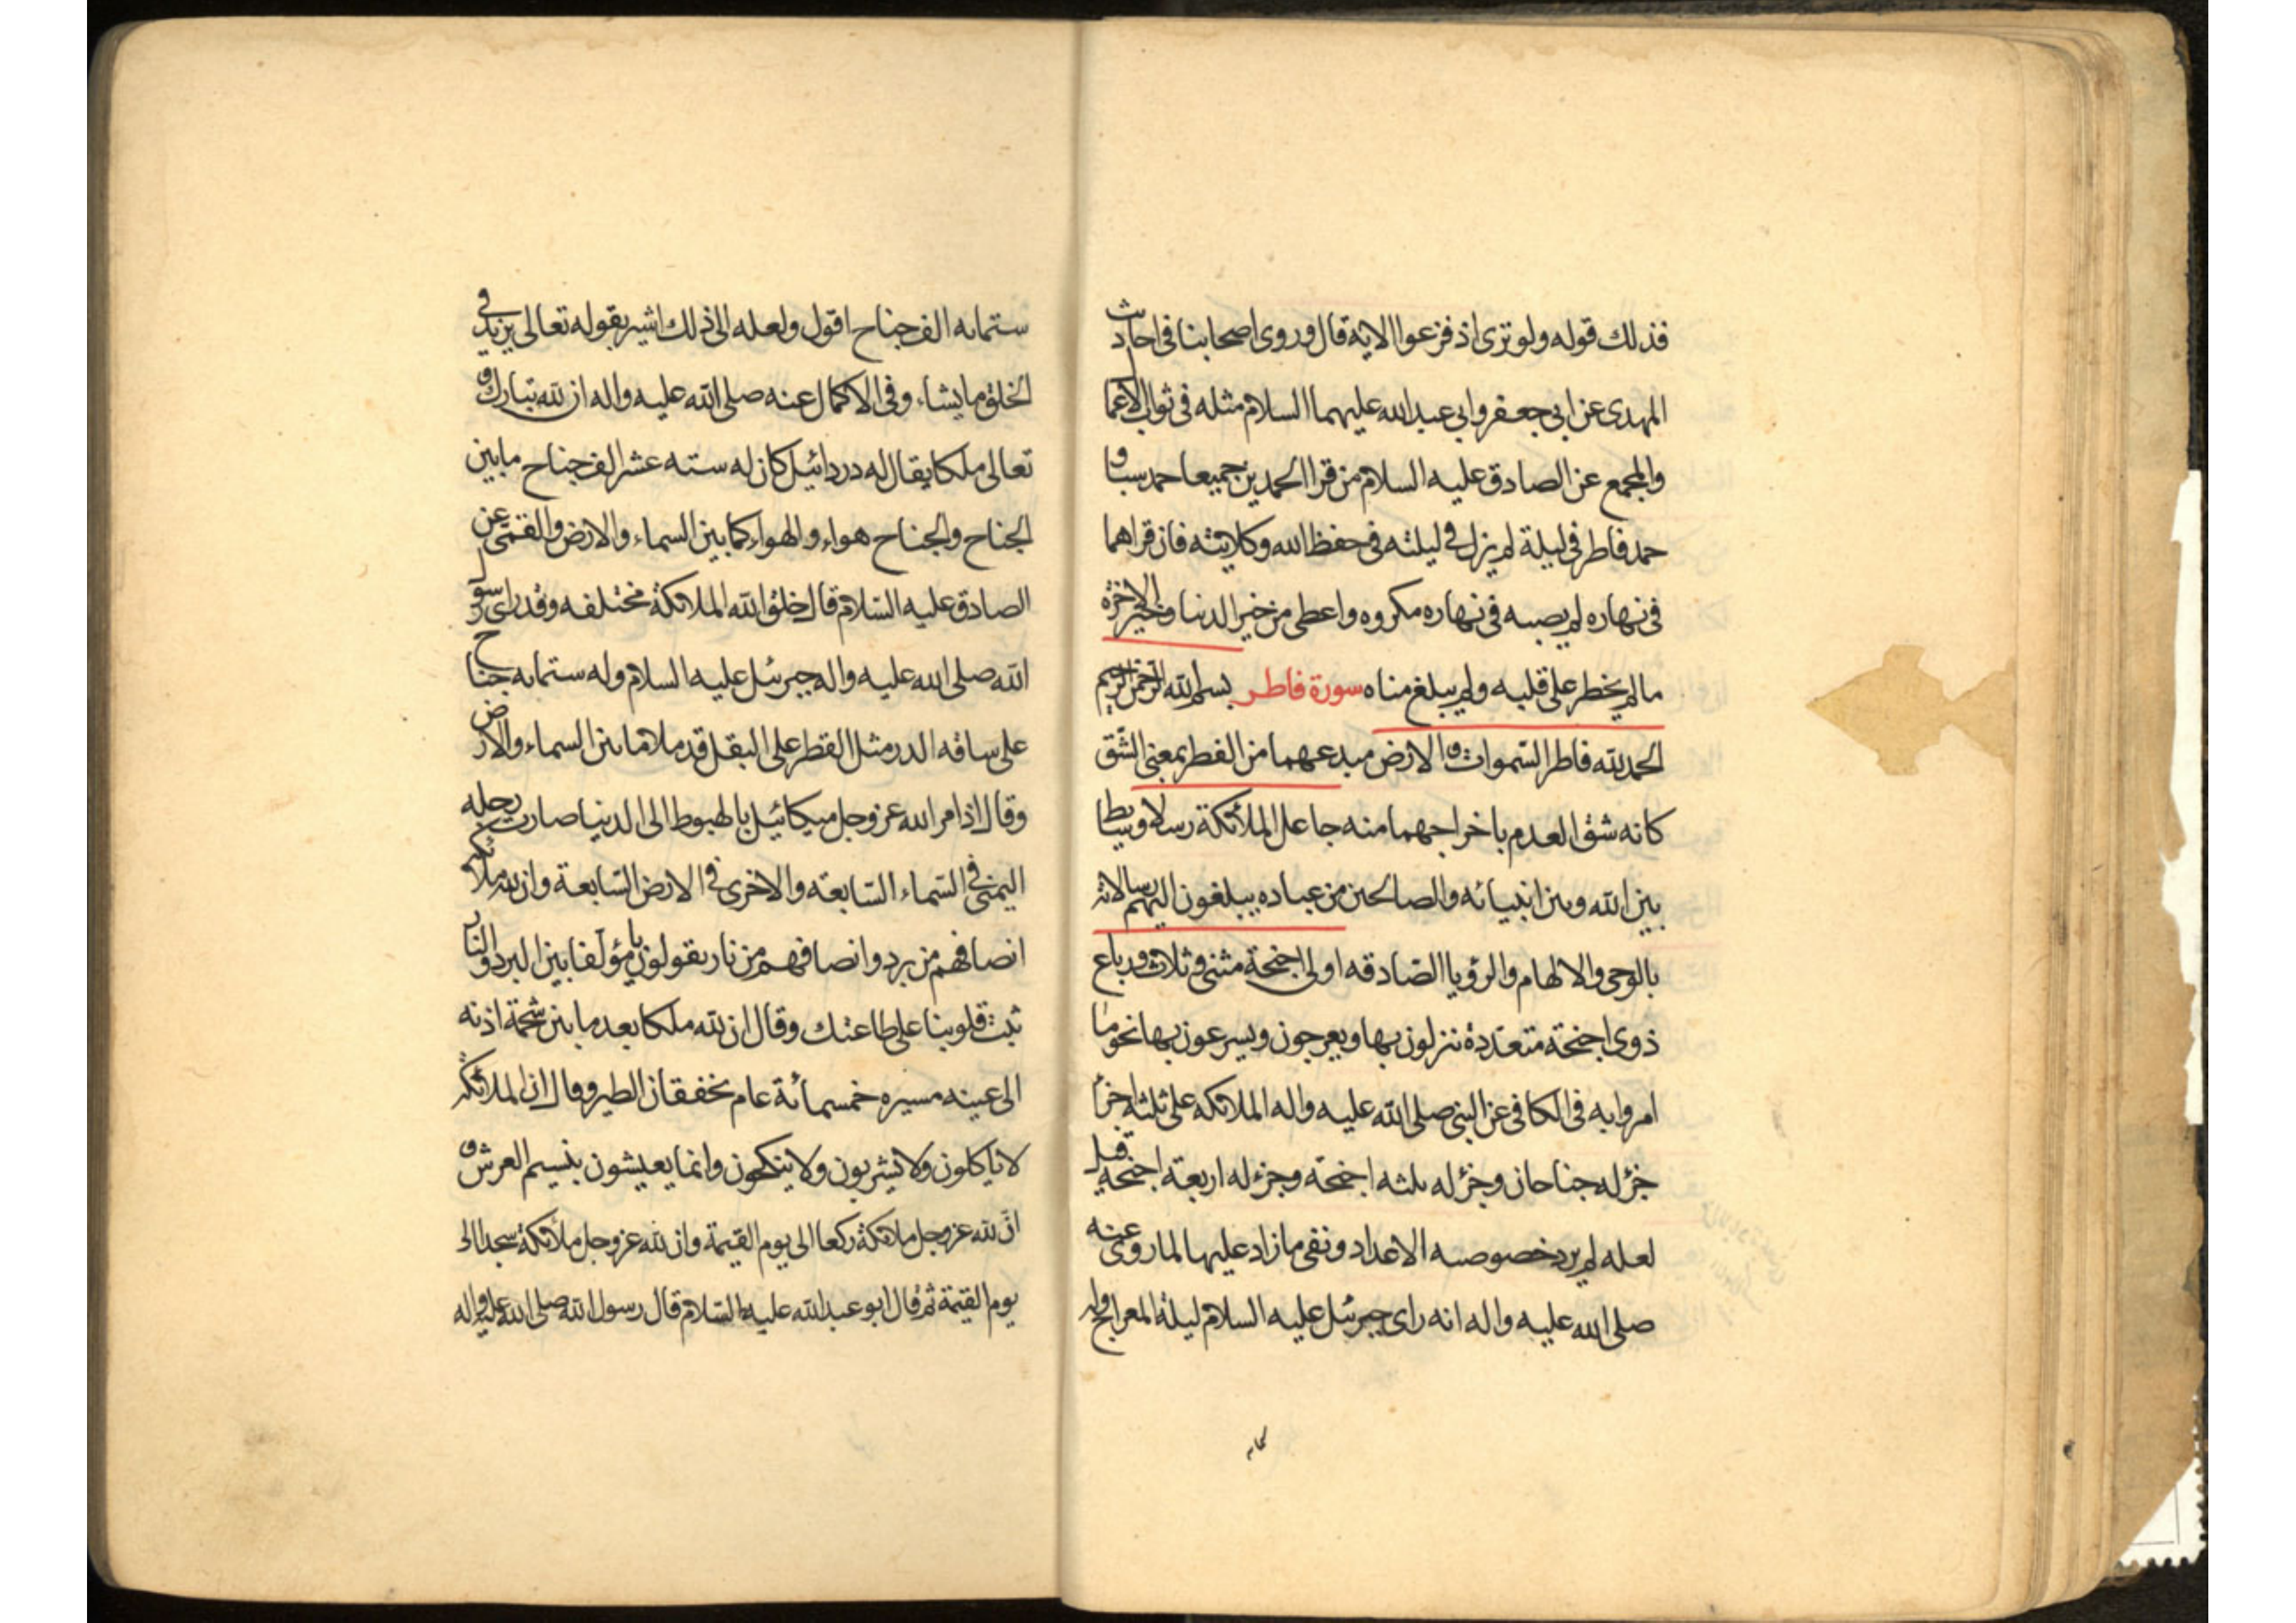 فذلك قوله ولو ترى اذ فزعوا الاية قال وروى اصحابنا فى احاديث
المهدى عن ابى جعفر وابى عبد الله عليهما السلام مثله فى ثواب الاعما
والمجمع عن الصادق عليه السلام من قرا الحمدين جميعا حمد سبا و
حمد فاطر فى ليلة لم يزل فى ليلته فى حفظ الله وكلايته فان قراهما
فى نهاره لم يصبه فى نهاره مكروه واعطى من خير الدنيا وخير الاخرة
ما لم يخطر على قلبه ولم يبلغ مناه سورة فاطر بسم الله الرحمن الرحيم
الحمد لله فاطر السموات و الارض مبدعهما من الفطر بمعنى الشق
كانه شق العدم باخراجهما منه جاعل الملائكة رسلا وسايط
بين الله وبين انبيائه والصالحين من عباده يبلغون اليهم رسالاته
بالوحى والالهام والرؤيا الصادقه اولى اجنحة مثنى و ثلاث ورباع
ذوى اجنحة متعددة ننزلون بها ويعرجون ويسرعون بها نحو ما
امروا به فى الكافى عن النبى صلى الله عليه واله الملائكه على ثلثه اجزا
جزء له جناحان وجزء له ثلثه اجنحة وجزء له اربعة اجنحة قيل
لعله لم يرد خصوصيه الاعداد ونفى ما زاد عليها لما روى عنه
صلى الله عليه واله انه راى جبرئيل عليه السلام ليلة المعراج وله
ستمايه الف جناح اقول ولعله الى ذلك اشير بقوله تعالى يزيد فى
الخلق ما يشاء وفى الاكمال عنه صلى الله عليه واله ان لله تبارك و
تعالى ملكا يقال له دردائيل كان له سته عشر الف جناح ما بين
الجناح والجناح هواء والهواء كما بين السماء والارض والقمى عن
الصادق عليه السلام قال خلق الله الملائكة مختلفه وقد راى رسول
الله صلى الله عليه واله جبرئيل عليه السلام وله ستمايه جناح
على ساقه الدر مثل القطر على البقل قد ملا ما بين السماء والارض
وقال اذا امر الله عز وجل ميكائيل بالهبوط الى الدنيا صارت رجله
اليمنى فى السماء السابعه والاخرى فى الارض السابعة وان لله ملائكة
انصافهم من برد وانصافهم من نار يقولون يا مؤلفا بين البرد والنار
ثبت قلوبنا على طاعتك وقال ان لله ملكا بعد ما بين شحمة اذنه
الى عينه مسيره خمسمائة عام بخفقان الطير وقال ان الملائكه
لا ياكلون ولا يشربون ولا ينكحون وانما يعيشون بنسيم العرش و
ان لله عز وجل ملائكة ركعا الى يوم القيمة وان لله عز وجل ملائكة سجدا الى
يوم القيمة ثم قال ابو عبد الله عليه السلام قال رسول الله صلى الله عليه واله